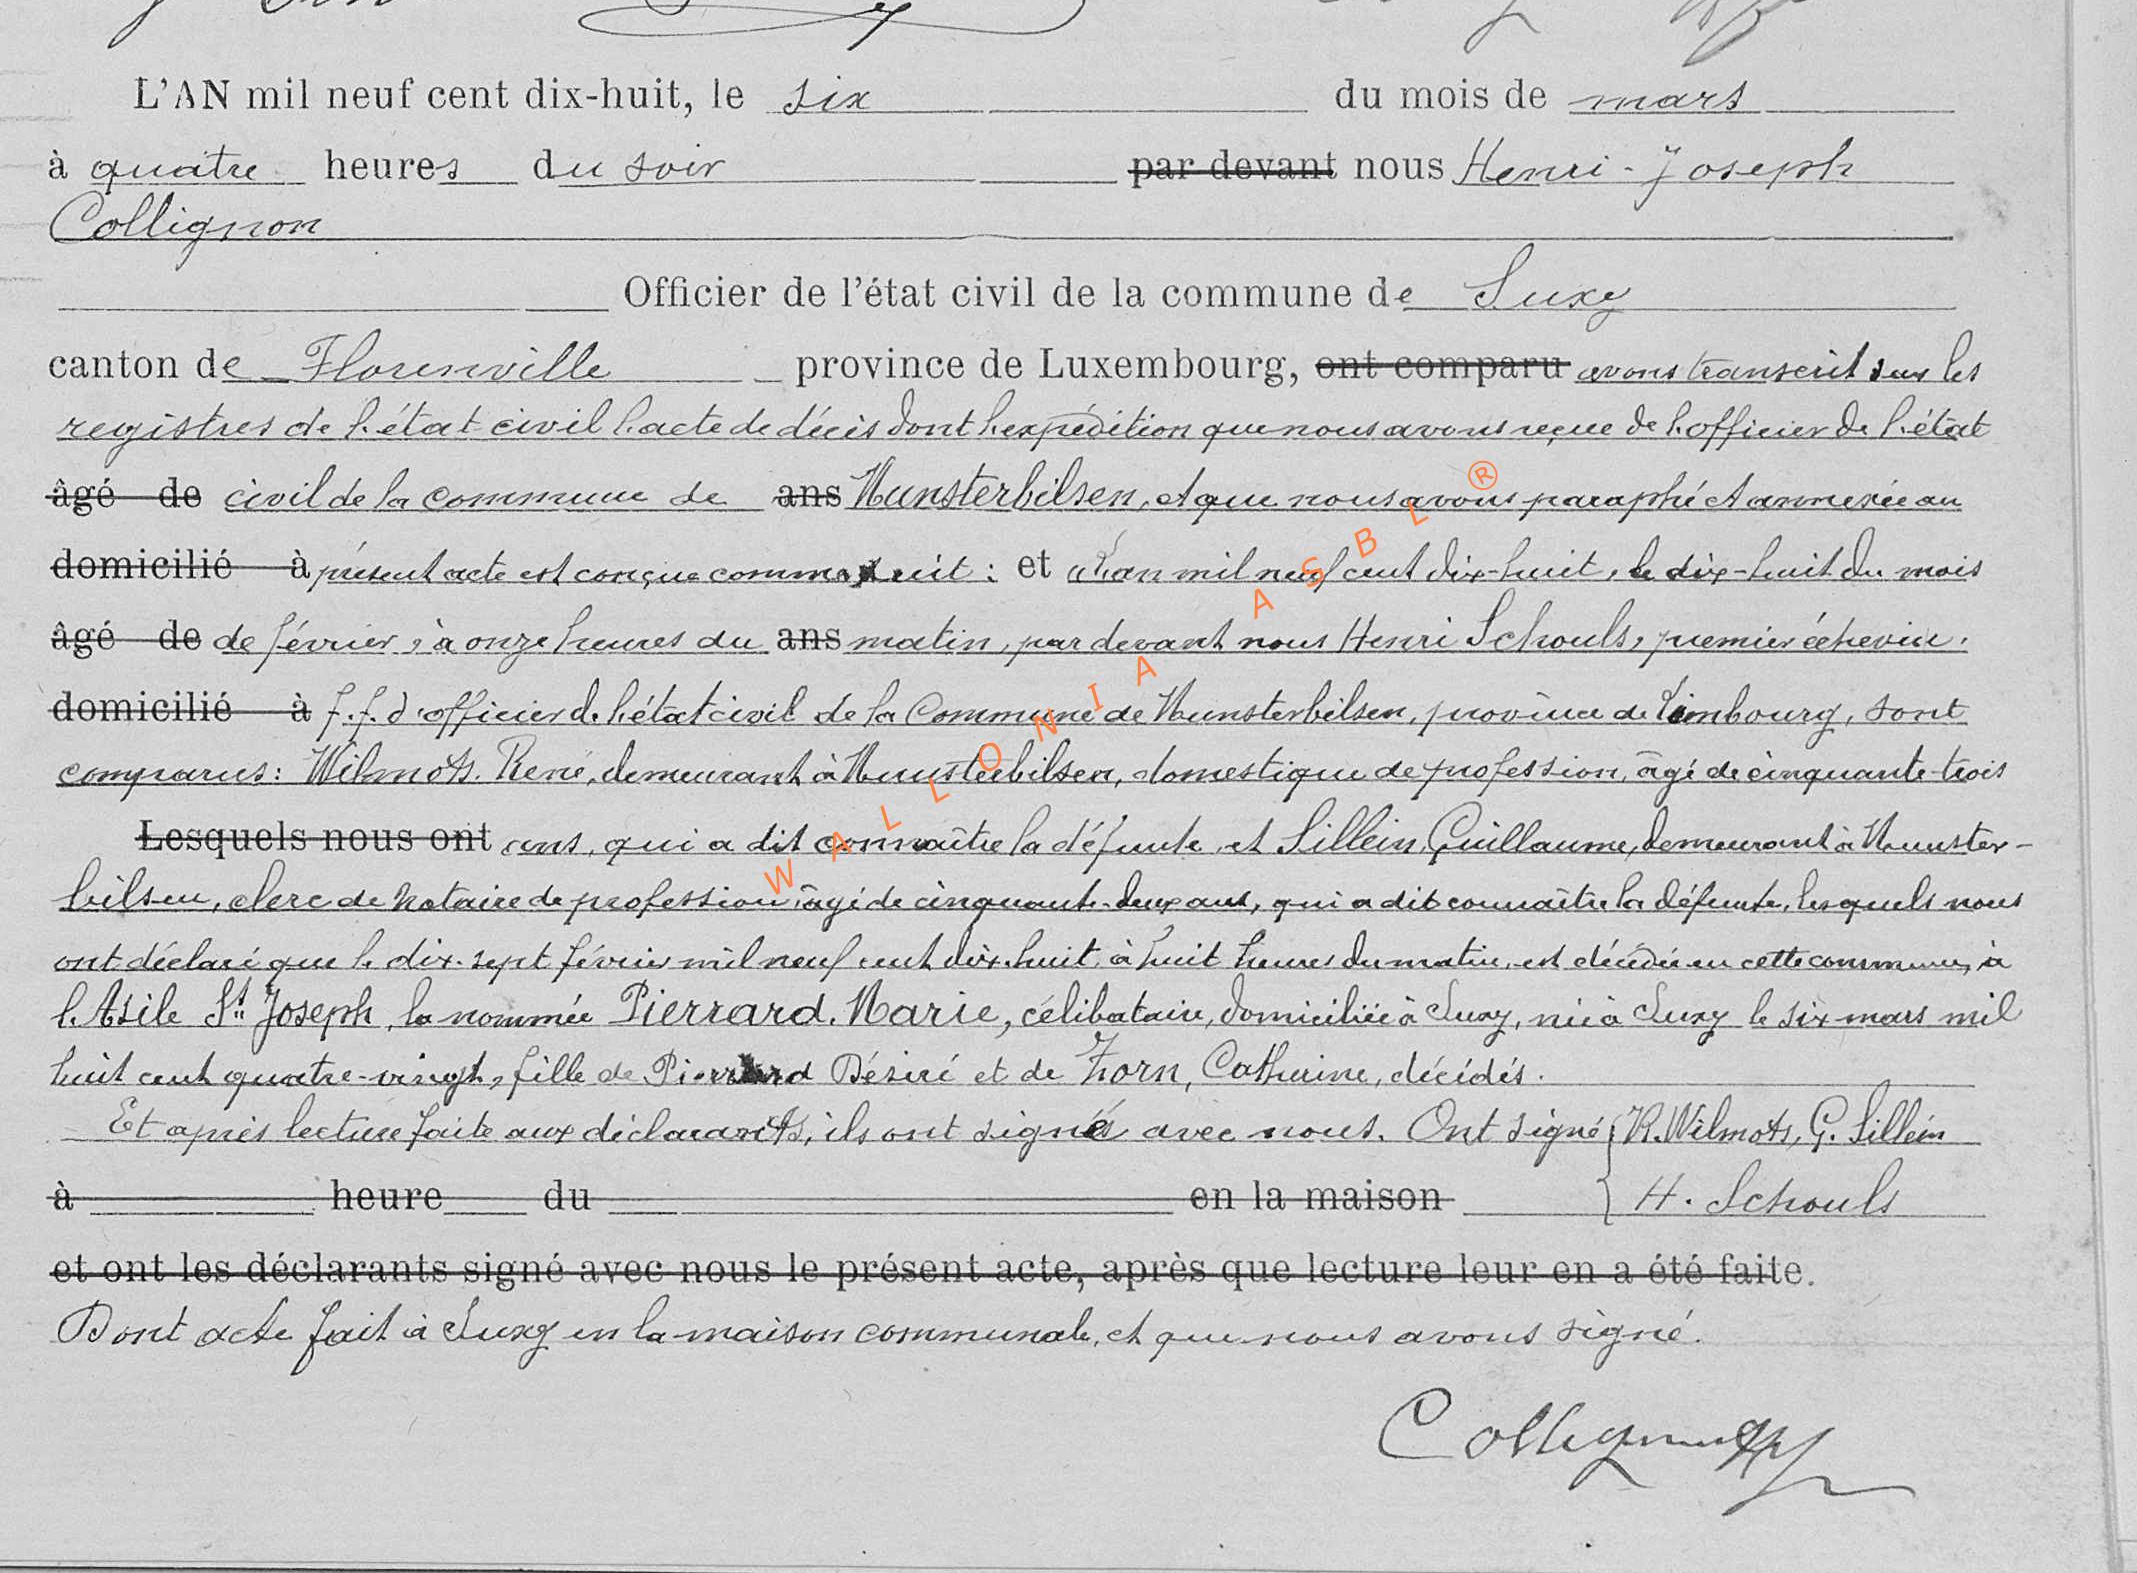 L'AN mil neuf cent dix-huit, le six du mois de mars
à quatre heures du soir par devant nous Henri-Joseph
Collignon
Officier de l'état civil de la commune de Suxy
canton de Florenville province de Luxembourg, ont comparu avons transcrit sur les
registres de l'état civil l'acte de décès dont l'expédition que nous avons reçue de l'officier de l'état
âgé de civil de la commune de ans Munsterbilsen, et que nous avons paraphé et annexée au
domicilié à présent acte est conçue comme suit : et "L'an mil neuf cent dix-huit, le dix-huit du mois
âgé de de février, à onze heures du ans matin, par devant nous Henri Schouls, premier échevin,
domicilié à f.f. d'officier de l'état civil de la Commune de Munsterbilsen, province de Limbourg, sont
comparus: Wilmots. René, demeurant à Munsterbilsen, domestique de profession, âgé de cinquante-trois
Lesquels nous ont ans, qui a dit connaître la défunte, et Sillein, Guillaume, demeurant à Munster-
bilsen, clerc de notaire de profession, âgé de cinquante-deux ans, qui a dit connaître la défunte, lesquels nous
ont déclaré que le dix-sept février mil neuf cent dix-huit, à huit heures du matin, est décédée en cette commune, à
l'Asile St Joseph, la nommée Pierrard. Marie, célibataire, domiciliée à Suxy, née à Suxy le six mars mil
huit cent quatre-vingt, fille de Pierrard Désiré et de Zorn, Catherine, décédés.
Et après lecture faite aux déclarants, ils ont signé avec nous. Ont signé { R. Wilmots, G. Sillein
à heure du en la maison } H. Schouls
et ont les déclarants signé avec nous le présent acte, après que lecture leur en a été faite.
Dont acte fait à Suxy en la maison communale, et que nous avons signé.
Collignon
WALLONIA ASBL ®